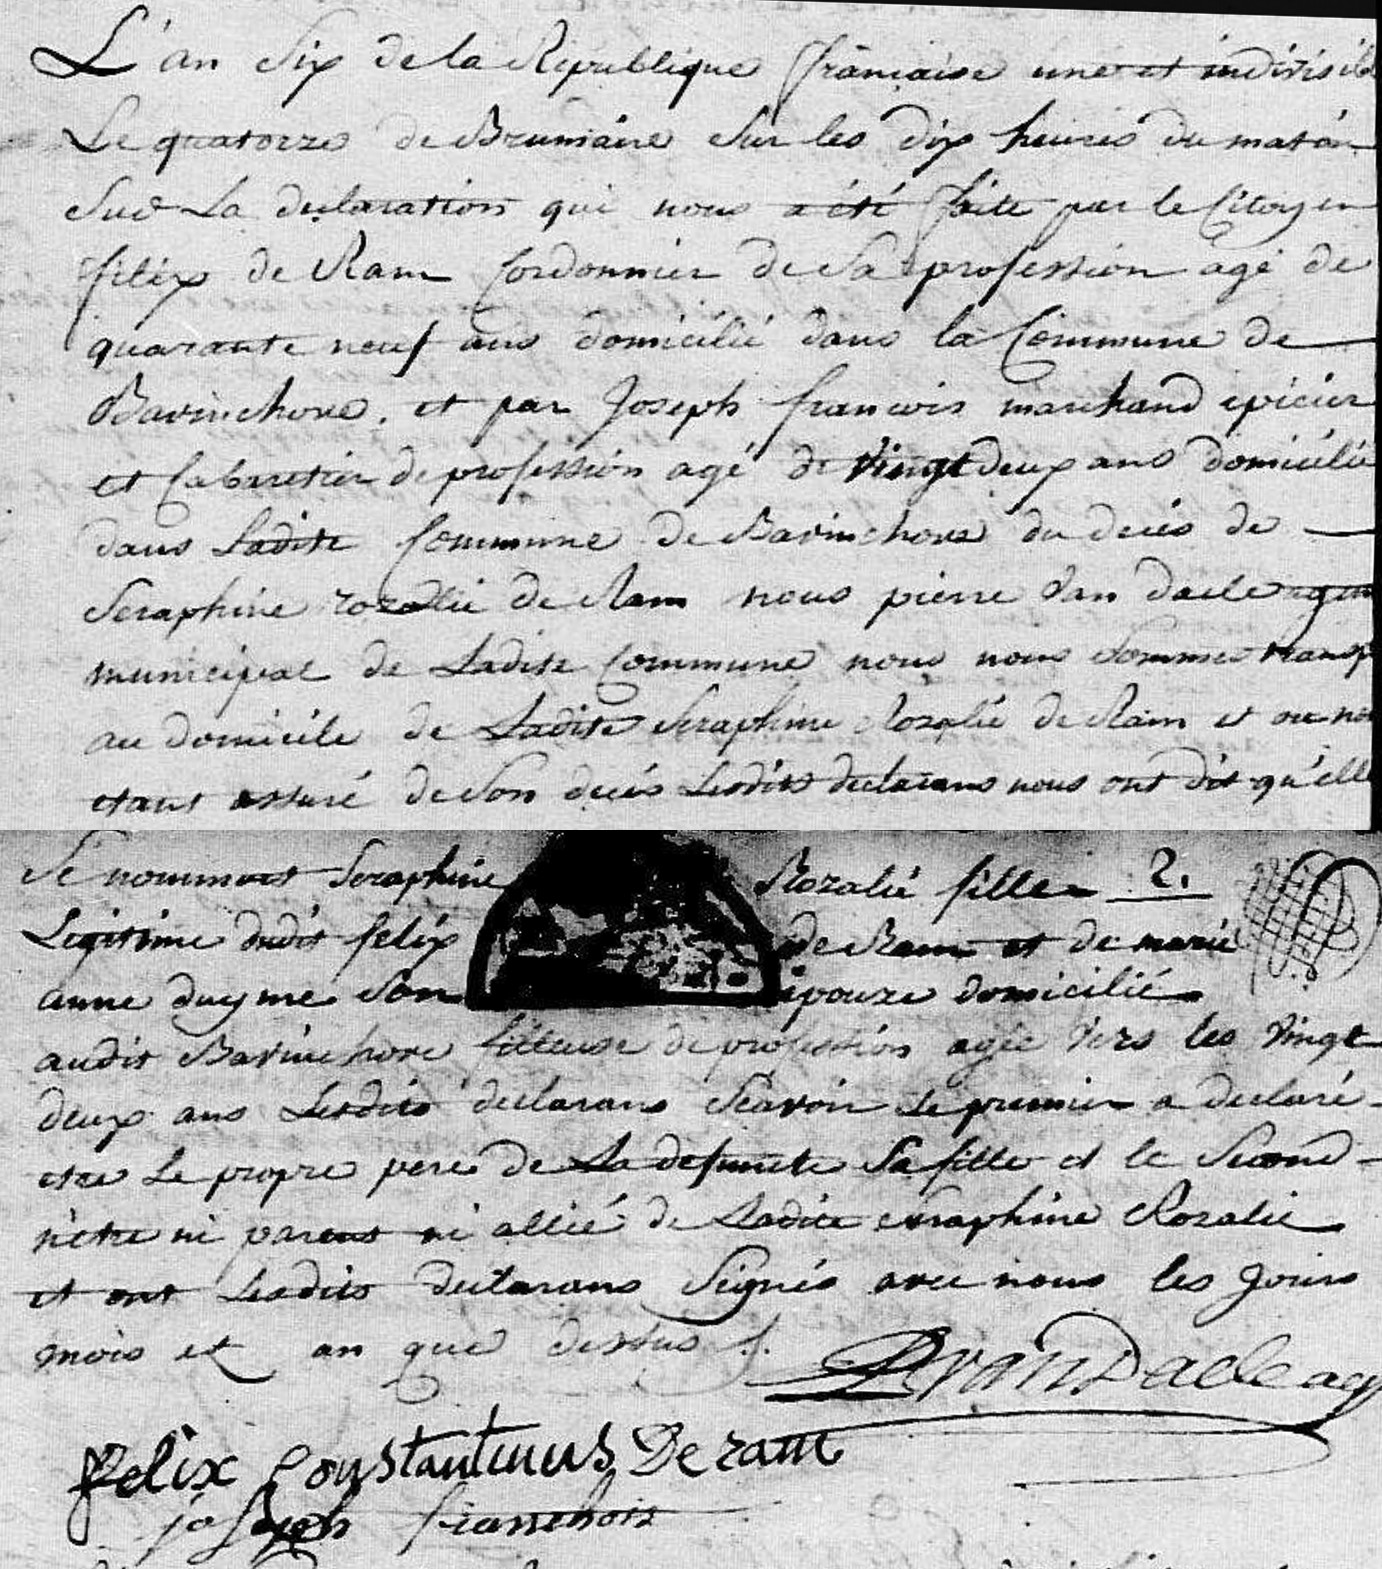 L'an Six de la Republique française une et indivisible
Le quatorze de Brumaire Sur les dix heures du matin
Sur La declaration qui nous a été faite par le Citoyen
félix de Ram Cordonnier de Sa profession agé de
quarante neuf ans domicilié dans la Commune de
Bavinchove. et par Joseph francois marchand epicier
et Cabaretier de profession agé de vingt deux ans domicilié
dans Ladite Commune de Bavinchove du decés de
Seraphine rozalie de Ram nous pierre Van daele agent
municipal de Ladite Commune nous nous sommes transp
au domicile de Ladite Seraphine Rozalie de Ram et ou no
etant assuré de Son decés Lesdits declarans nous ont dit qu'elle
Se nommoit Seraphine Rozalie fille 2.
Legitime dudit felix de Ram et de marie
anne duyme Son epouze domicilié
audit Bavinchove filleuse de profession agée vers les vingt
deux ans Lesdits declarans Scavoir Le premier a declaré
etre Le propre pere de La defunte Sa fille et le Second
n'etre ni parent ni allié de Ladite seraphine Rozalie
et ont Lesdits declarans Signés avec nous les Jours
mois et an que dessus
P vanDaele ag
Felix Constantinus De ram
joseph franchois